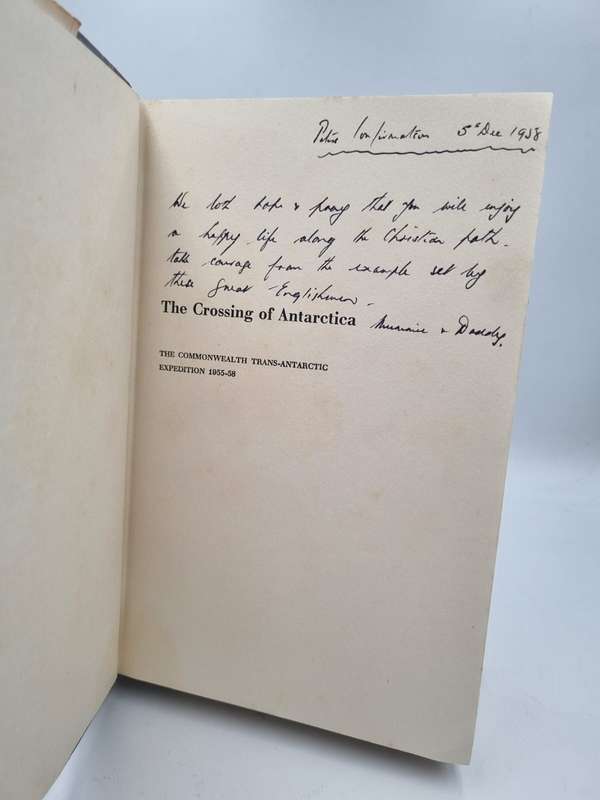 Confirmation 5th Dec 1958
We both hope & pray that you will enjoy
a happy life along the Christian path.
take courage from the example set by
these great Englishmen.
The Crossing of Antarctica
Mummie & Daddy.
THE COMMONWEALTH TRANS-ANTARCTIC
EXPEDITION 1955-58